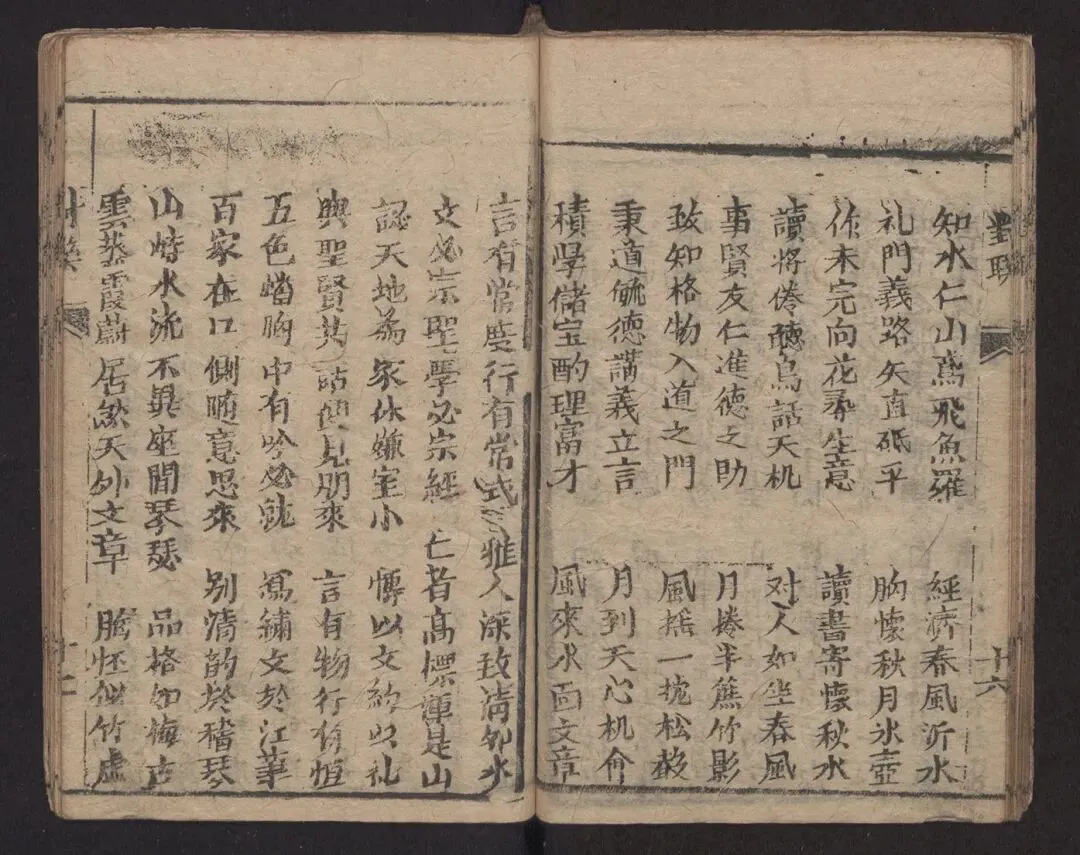 對聯
知水仁山鳶飛魚羅 經濟春風沂水
礼門義路矢直砥平 胸懷秋月氷壺
作未完向花尋生意 讀書寄懷秋水
讀將倦聽鳥話天机 对人如坐春風
事賢友仁進德之助 月捲半簾竹影
致知格物入道之門 風摇一枕松
秉道毓德講義立言 月到天心机
積學儲宝酌理富才 風來水面文章
十六
言有常度行有常式 雅人深致清如水
文必宗聖學必宗經 仁者高標運是山
認天地為家休嫌室小 博以文約以礼
與聖賢共話便見朋來 言有物行有恒
五色當胸中有吟必就 寫繡文於江筆
百家在口側随意思來 别清韵於稽琴
山峙水流不異座間琴瑟 品格如梅古
雲蒸霞蔚居然天外文章 胸怀似竹虚